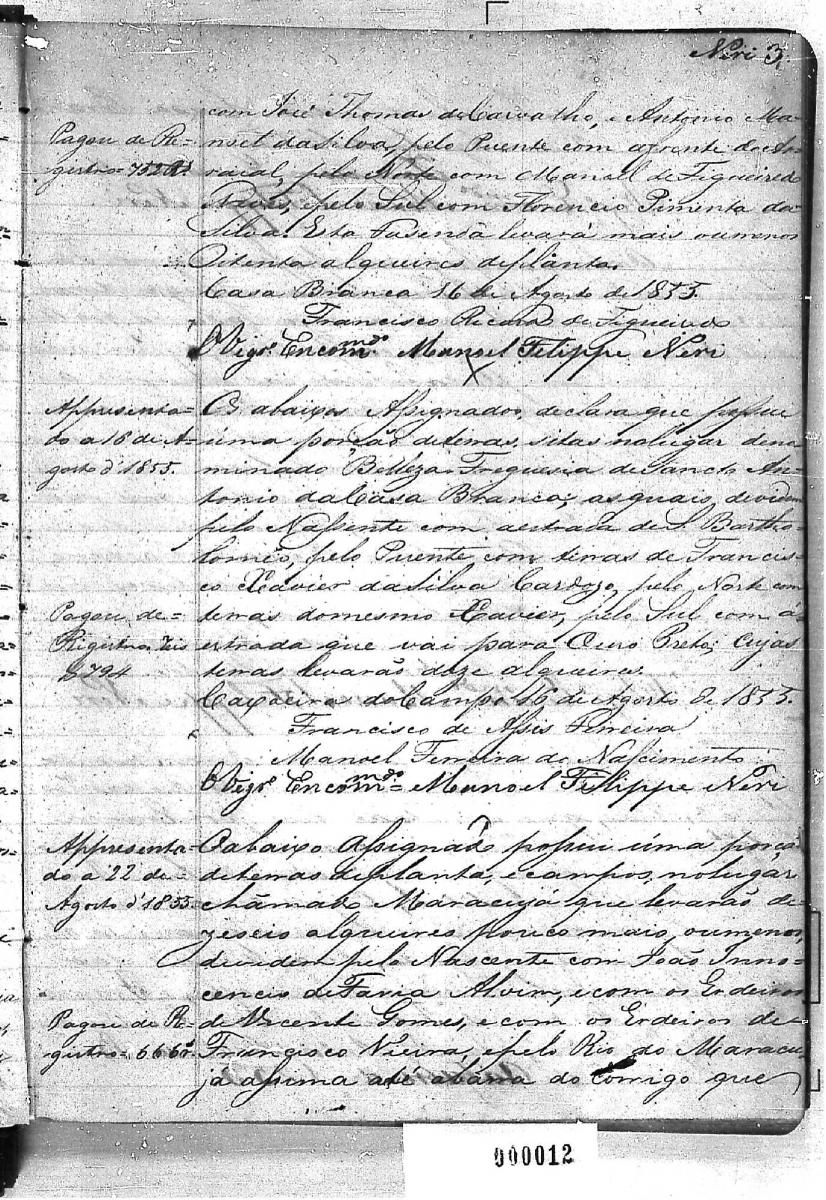 Neri 3,
com José Thomas de Carvalho, e Antonio Ma-
noel da Silva, pelo Puente com a frente do Ar-
raial, pelo Norte com Manoel de Figueiredo
Neves, e pelo Sul com Florencio Pimenta da
Silva. Esta Fasenda levará mais ou menos
oitenta alqueires de planta.
Casa Branca 16 de Agosto de 1855.
Francisco de Figueiredo
O Vigrº. Encommdº. Manoel Filippe Neri
Pagou de Re-
gistro
Appresenta-
do a 16 de A-
gosto d'1855.
Os abaixos Assignados, declara que possue
uma porção de terras, sitas no lugar deno
minado Belleza Freguesia de Sancto An-
tonio da Casa Branca; as quais, devidem
pelo Nassente com a estrada de S. Bartho-
lomeo, pelo Puente com terras de Francis-
co Xavier da Silva Cardozo, pelo Norte com
terras do mesmo Xavier, pelo Sul com a
estrada que vai para Ouro Preto; Cujas
terras levarão doze alqueires.
Caxoeira do Campo 16 de Agosto de 1855.
Francisco de Assis Ferreira
Manoel Ferreira do Nascimento
O Vigrº. Encommdº. Manoel Filippe Neri
Pagou de
Registro Reis
$794
Appresenta-
do a 22 de
Agosto d'1855
O abaixo Assignado possui uma porção
de terras de planta, e campos, no lugar
chamado Maracujá que levarão de-
zeseis alqueires pouco mais, ou menos,
devidem pelo Nascente com João Inno-
cencio de Faria Alvim, e com os Erdeiros
de Vicente Gomes, e com os Erdeiros de
Francisco Vieira, e pelo Rio do Maracu-
já assima até a barra do corrigo que
Pagou de Re-
gistro 666 rs
000012